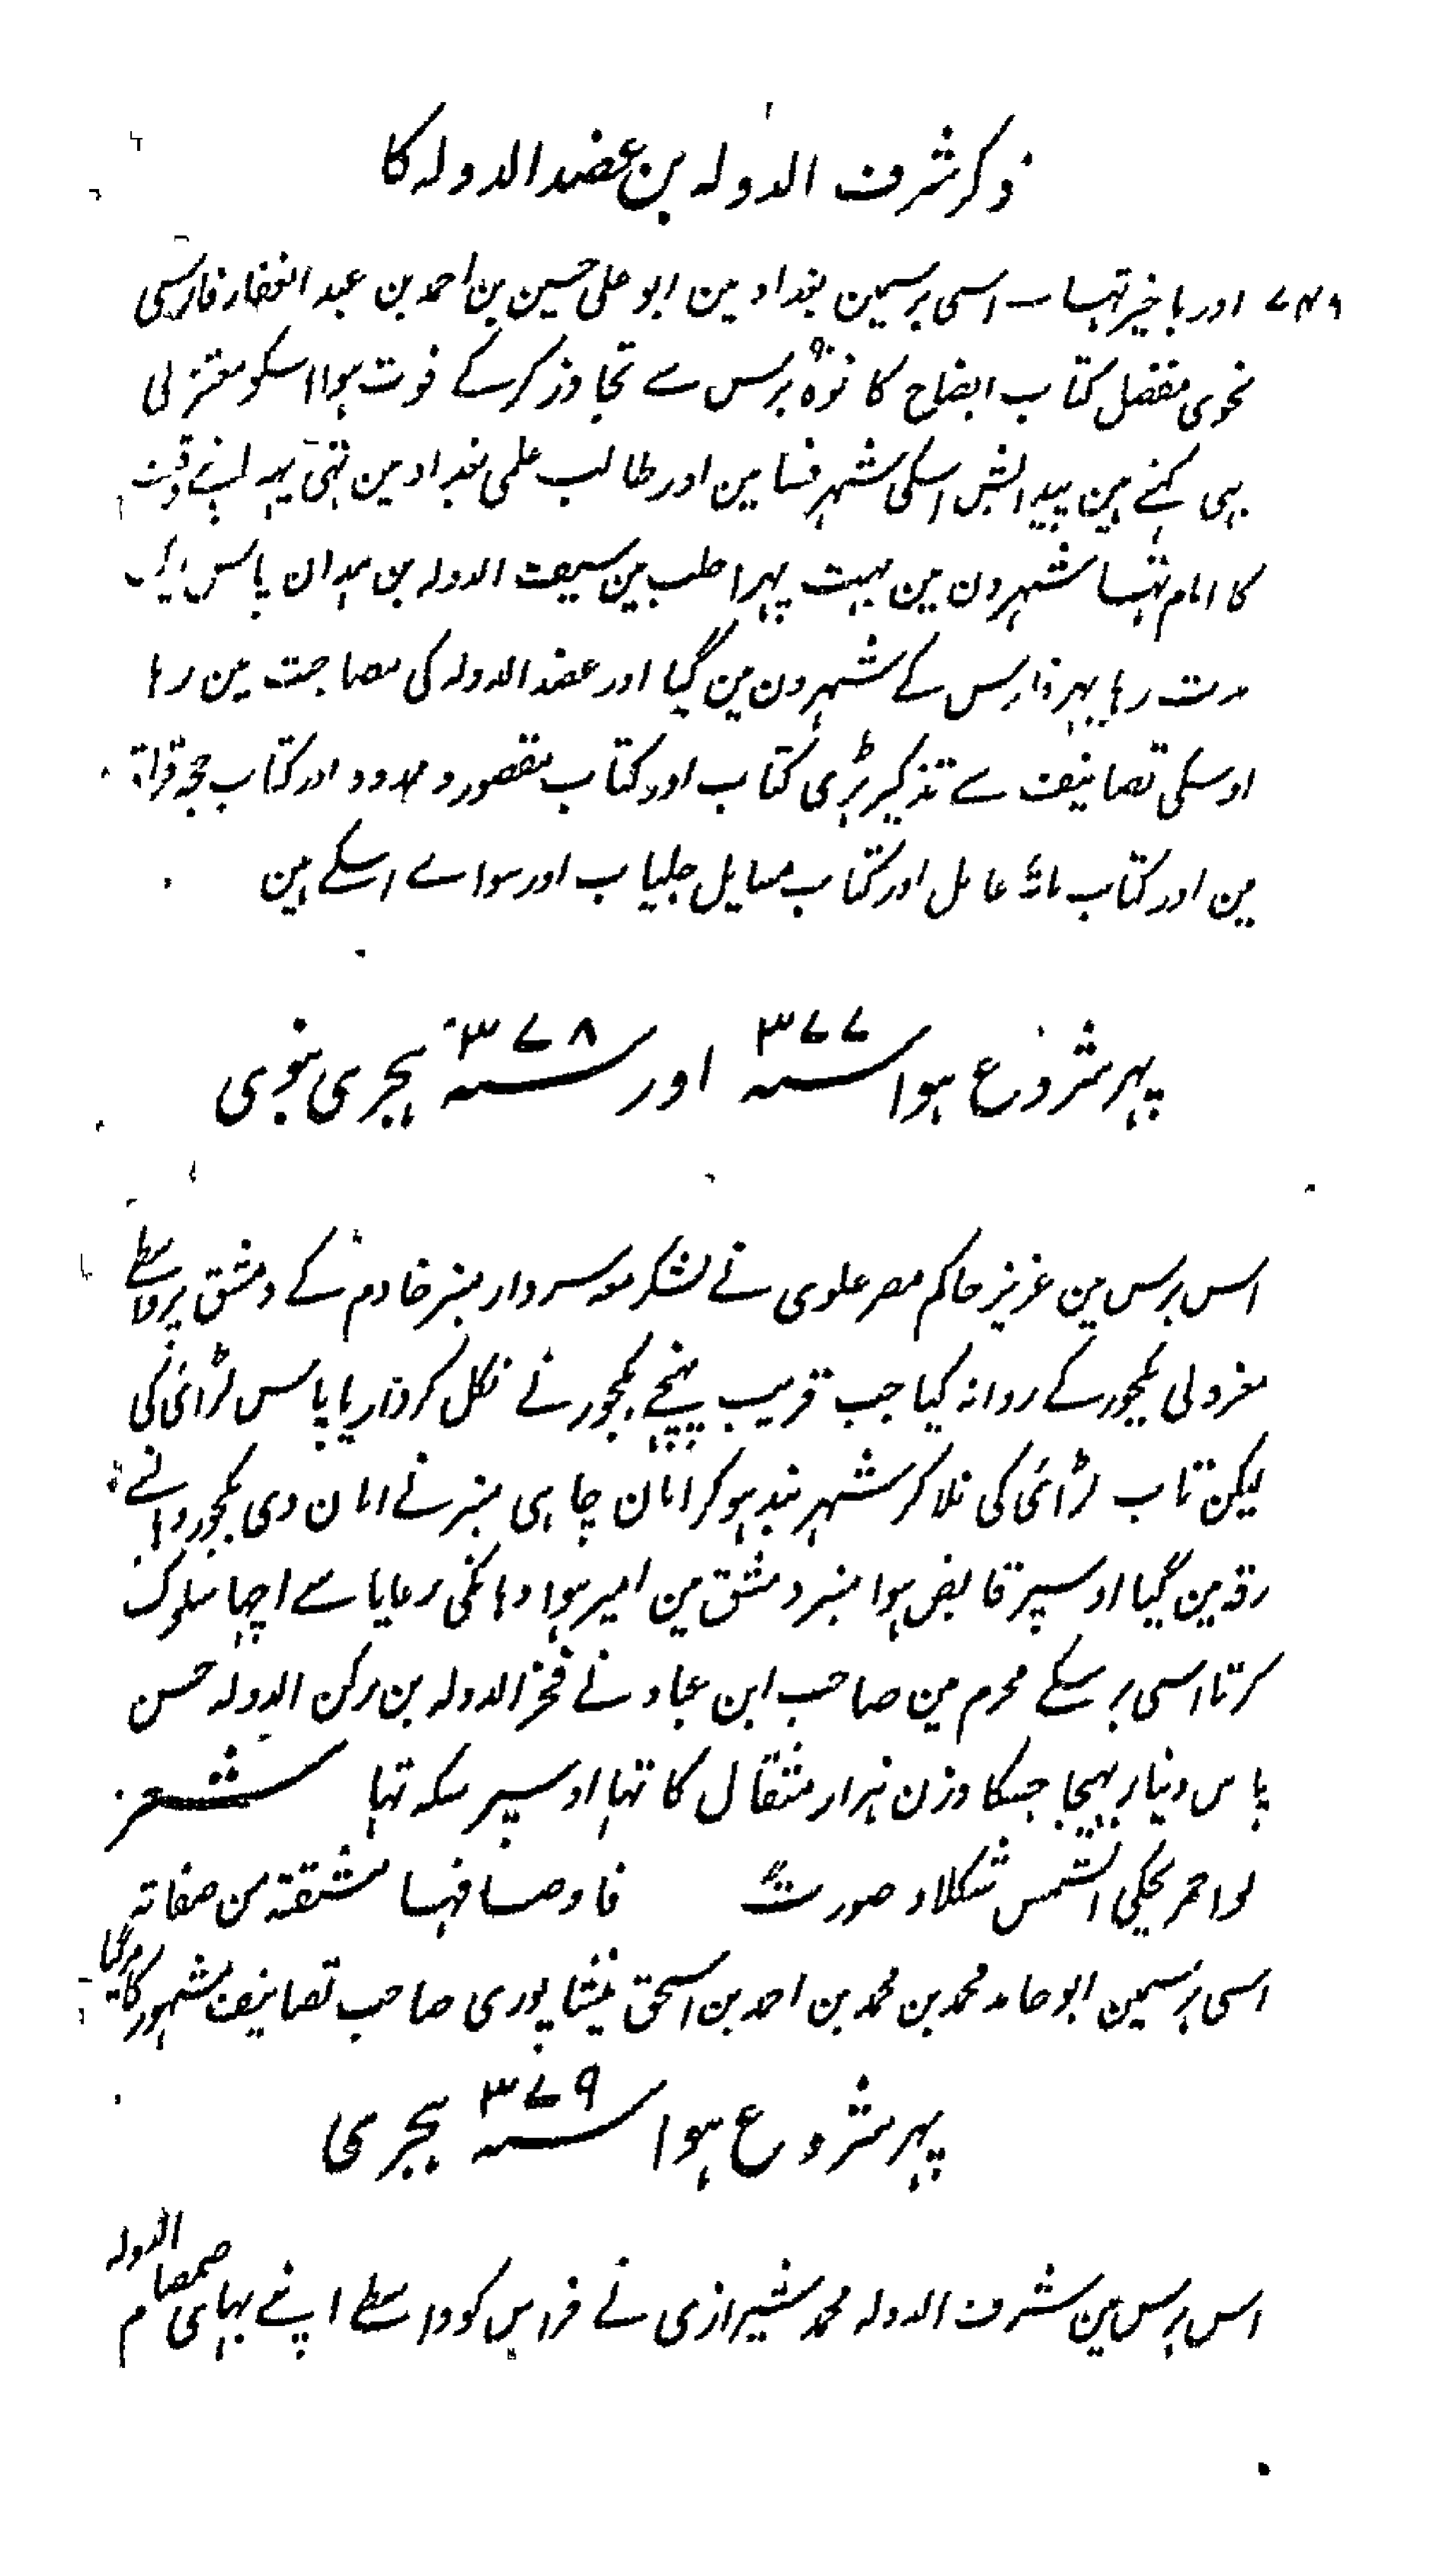 ذکر شرف الدولہ بن عضد الدولہ کا
۷۴۶ اور باخیر تہا ۔ اسی برسمین بغداد مین ابو علی حسین بن احمد بن عبد الغفار فارسی
نحوی مفضل کتاب ایضاح کا نوہ ۹۰ برس سے تجاوز کرکے فوت ہوا اسکو معتزلی
بہی کہتے ہین پیدایش اسکی شہر فسا مین اور طالب علمی بغداد مین تہی یہہ اپنے وقت
کا امام تہا شہرون مین بہت پہرا حلب مین سیف الدولہ بن ہمدان پاس ایک
مدت رہا پہر فارس کے شہرون مین گیا اور عضد الدولہ کی مصاحبت مین رہا
اوسکی تصانیف سے تذکیر بڑی کتاب اور کتاب مقصور و ممدود اور کتاب حجہ قراۃ
مین اور کتاب مائۃ عامل اور کتاب مسایل حلیاب اور سواے اسکے ہین
پہر شروع ہوا سنہ ۳۷۷ اور سنہ ۳۷۸ ہجری نبوی
اس برس مین عزیز حاکم مصر علوی نے لشکر معہ سردار منیر خادم کے دمشق پر واسطے
معزولی بکجور کے روانہ کیا جب قریب پہنچے بکجور نے نکل کر داریا پاس لڑائی کی
لیکن تاب لڑائی کی نلا کر شہر بند ہو کر امان چاہی منیر نے امان دی بکجور وہانسے
رقہ مین گیا اوسپر قابض ہوا منیر دمشق مین امیر ہوا وہانکی رعایا سے اچہا سلوک
کرتا اسی برسکے محرم مین صاحب ابن عباد نے فخر الدولہ بن رکن الدولہ حسن
پاس دینار بہیجا جسکا وزن ہزار مثقال کا تہا اوسپر سکہ تہا شعر
لواحمر یحکی الشمس شکلا و صورت فاوصافہا مشتقۃ من صفاتہ
اسی برسمین ابو حامد محمد بن محمد بن احمد بن اسحق نیشاپوری صاحب تصانیف مشہور کا مرگیا
پہر شروع ہوا سنہ ۳۷۹ ہجری
اس برس مین شرف الدولہ محمد شیرازی نے فراس کو واسطے اپنے بہای صمصام الدولہ